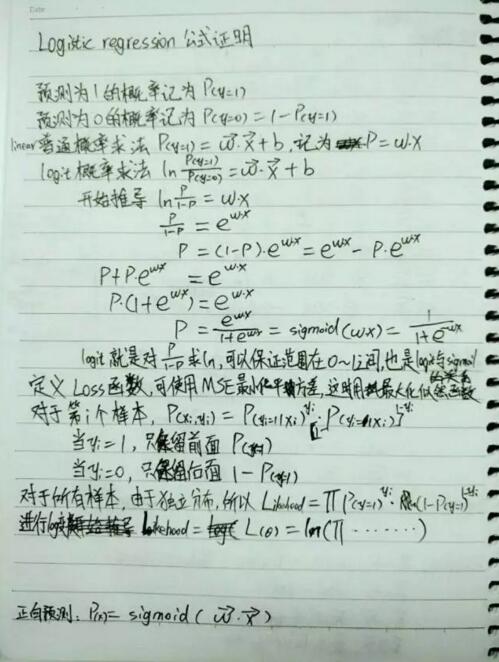 Date
Logistic regression 公式证明
预测为1的概率记为 P(y=1)
预测为0的概率记为 P(y=0) = 1-P(y=1)
linear 普通概率求法 P(y=1) = w⃗·x⃗+b, 记为 P=w·x
logit 概率求法 ln P(y=1)/P(y=0) = w⃗·x⃗+b
开始推导 ln P/(1-P) = w·x
P/(1-P) = e^(w·x)
P = (1-P)·e^(wx) = e^(wx) - P·e^(wx)
P+P·e^(wx) = e^(w·x)
P·(1+e^(wx)) = e^(w·x)
P = e^(wx)/(1+e^(wx)) = sigmoid(wx) = 1/(1+e^(-wx))
logit 就是对 P/(1-P) 求ln, 可以保证范围在0~1之间, 也是logit与sigmoid的关系
定义Loss函数, 可使用MSE最小化平方差, 这时用最大化似然函数
对于第i个样本, P(xi,yi) = P(yi=1|xi)^yi [1-P(yi=1|xi)]^(1-yi)
当yi=1, 只保留前面 P(y=1)
当yi=0, 只保留后面 1-P(y=1)
对于所有样本, 由于独立分布, 所以 Likehood = ∏ P(y=1)^yi (1-P(y=1))^(1-yi)
进行log Likehood = L(θ) = ln(∏ ········)
正向预测: P(x) = sigmoid(w⃗·x⃗)